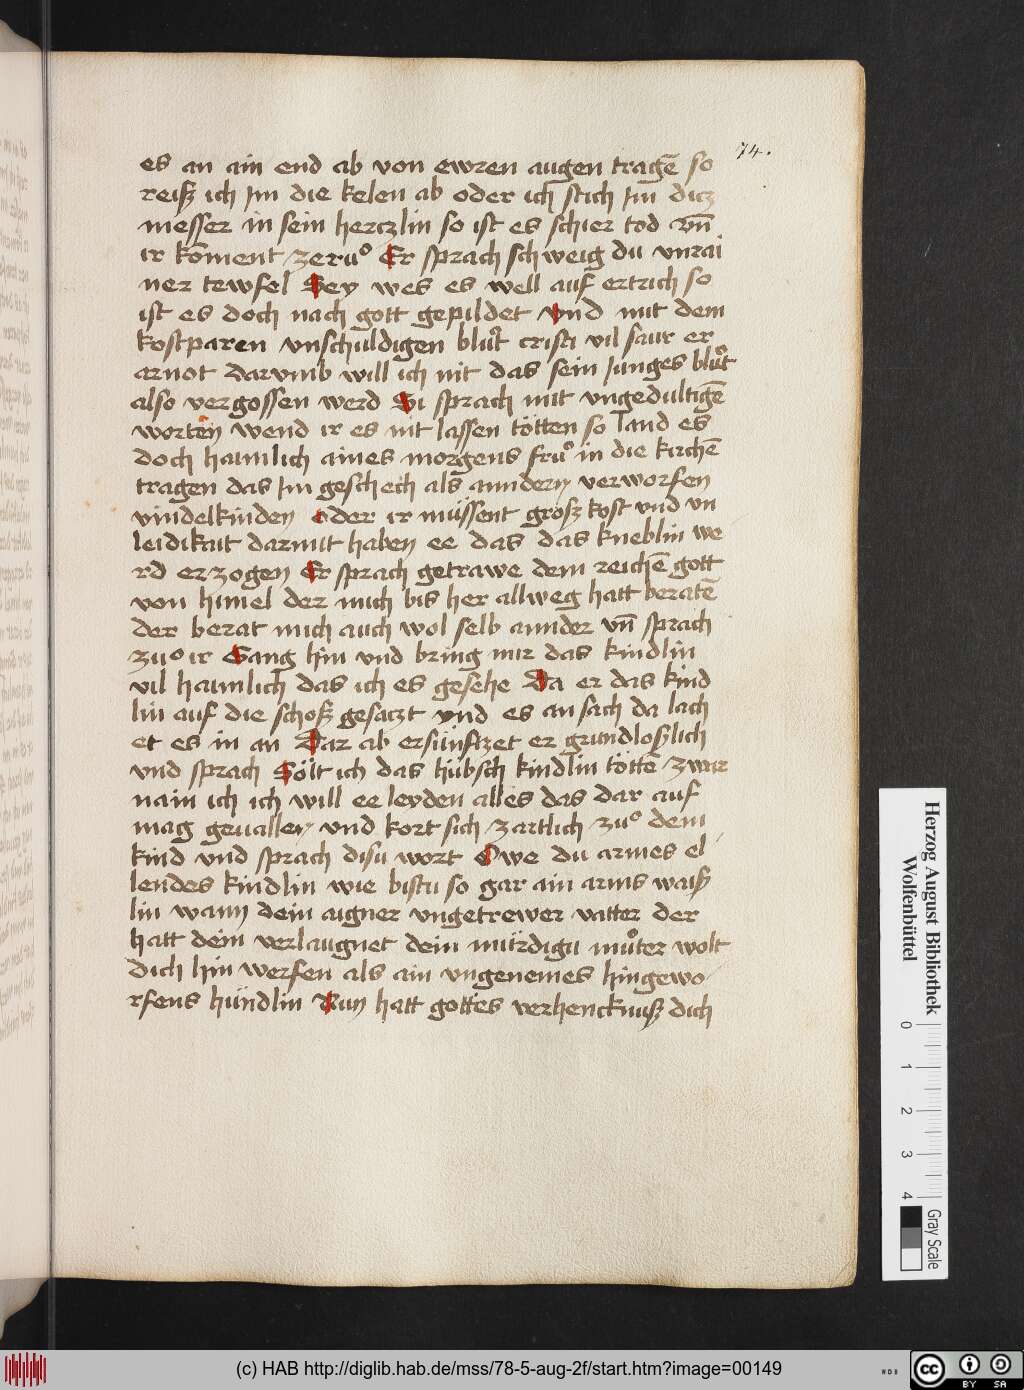 74.
es an ain end ab von ewren augen tragē so
reiß ich Im die kelen ab oder ich stich Im dicz
messer in sein herczlin so ist es schier tod vn̄
ir kōment zeruͦ Er sprach schweig du vnrai
ner tewfel Sey wes es well auf ertrich so
ist es doch nach gott gepildet vnd mit dem
kostparen vnschuldigen bluͦt cristi vil saur er
arnot darvmb will ich nit das sein Junges bluͦt
also vergossen werd Si sprach mit vngedultigē
worten wend ir es nit lassen tötten so land es
doch haimlich aines morgens fruͦ in die kirchē
tragen das Im geschech als anndern verworfen
vindelkinden oder ir müssent groß kost vnd vn
leidikait darmit haben ee das das kneblin we
rd erzogen Er sprach getrawe dem reichē gott
von himel der mich bis her allweg hatt beratē
der berat mich auch wol selb annder vn̄ sprach
zuͦ ir Gang hin vnd bring mir das kindlin
vil haimlich das ich es gesehe Da er das kind
lin auf die schoß gesaczt vnd es an sach da lach
et es in an Dar ab ersünftzet er grundloßlich
vnd sprach Sölt ich das hübsch kindlin töttē zwar
nain ich ich will ee leyden alles das dar auf
mag geuallen vnd kort sich zartlich zuͦ dem
kind vnd sprach disu wort Owe du armes el
lendes kindlin wie bistu so gar ain arms waiß
lin wann dein aigner vngetrewer vatter der
hatt dein verlaugnet dein mürdigu muͦter wolt
dich hin werfen als ain vngenemes hingewo
rfens hündlin Nun hatt gottes verhencknuß dich
Herzog August Bibliothek
Wolfenbüttel
0 1 2 3 4
Gray Scale
(c) HAB http://diglib.hab.de/mss/78-5-aug-2f/start.htm?image=00149
cc BY SA